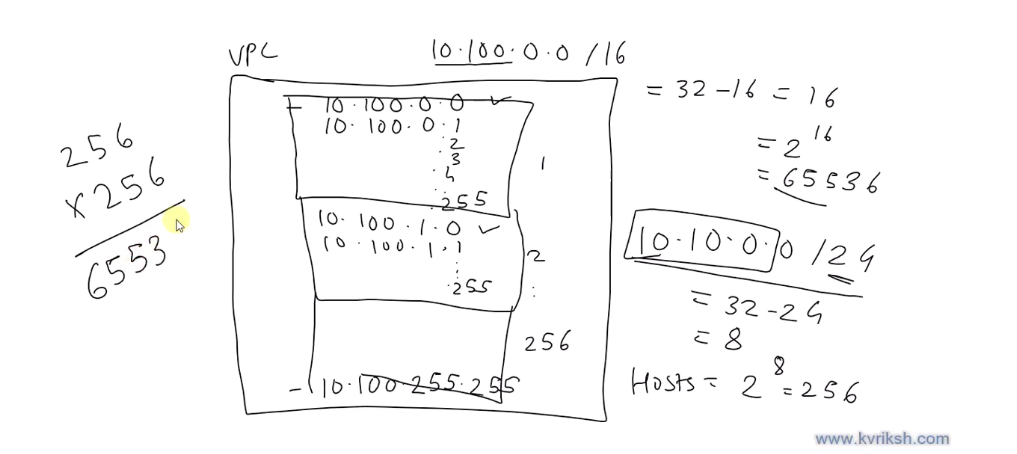 VPC
10.100.0.0 /16
- 10.100.0.0 ✓
10.100.0.1
.2
.3
.4
.
.255
1
10.100.1.0 ✓
10.100.1.1
:
.255
2
:
256
- 10.100.255.255
256
x 256
6553
= 32 - 16 = 16
= 2^16
= 65536
10.10.0.0 /24
= 32 - 24
= 8
Hosts = 2^8 = 256
www.kvriksh.com